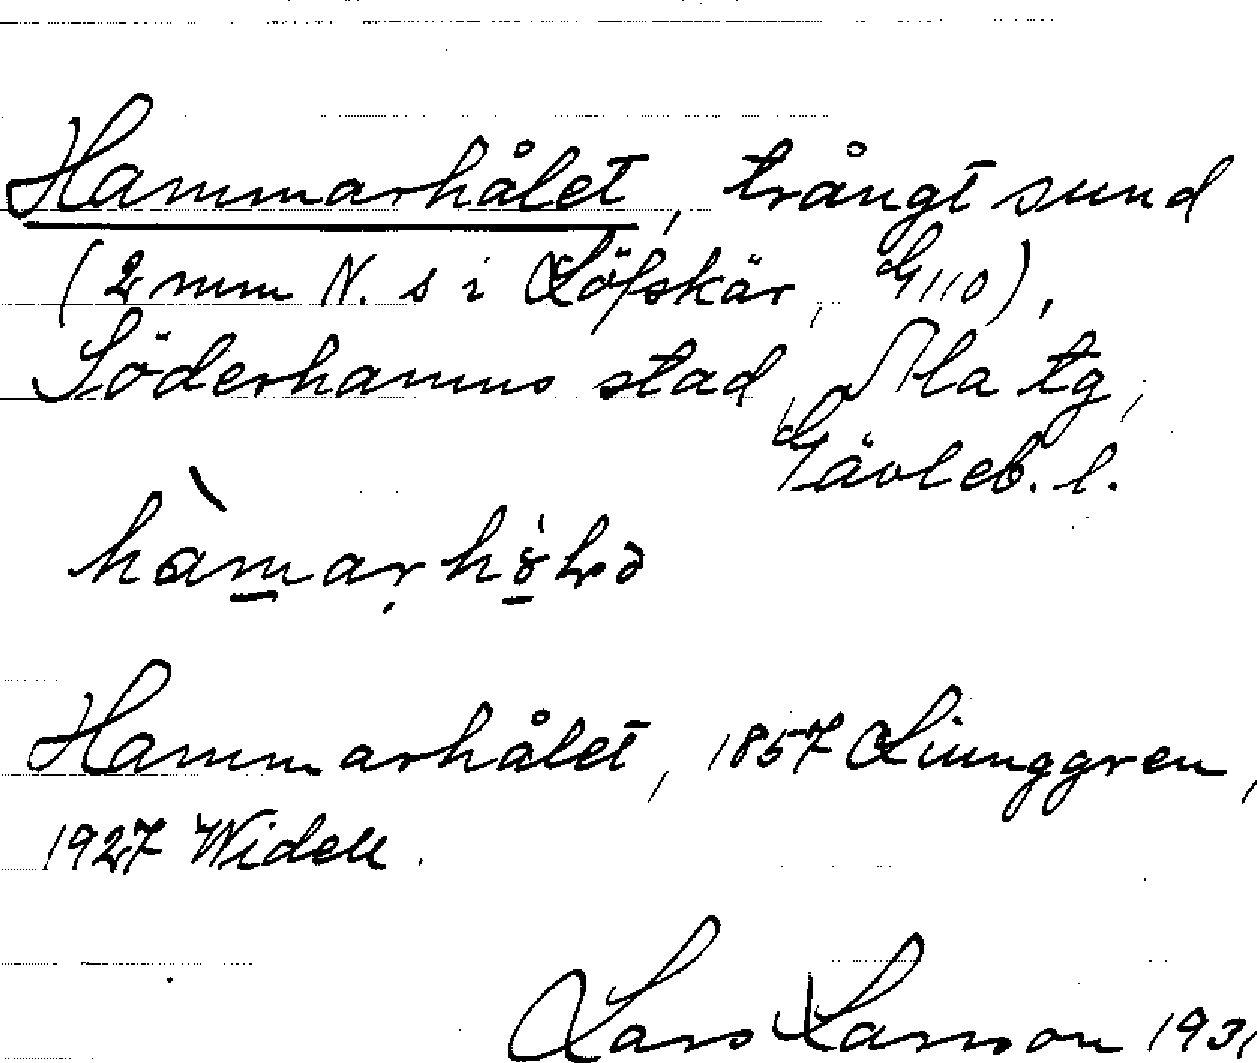 Hammarhålet, trångt sund
(2 mm N. s i Löfskär, G110),
Söderhamns stad, Ala tg,
Gävleb. l.
Hammarhålet, 1857 Liunggren,
1927 Widell.
Lars Larsson 193